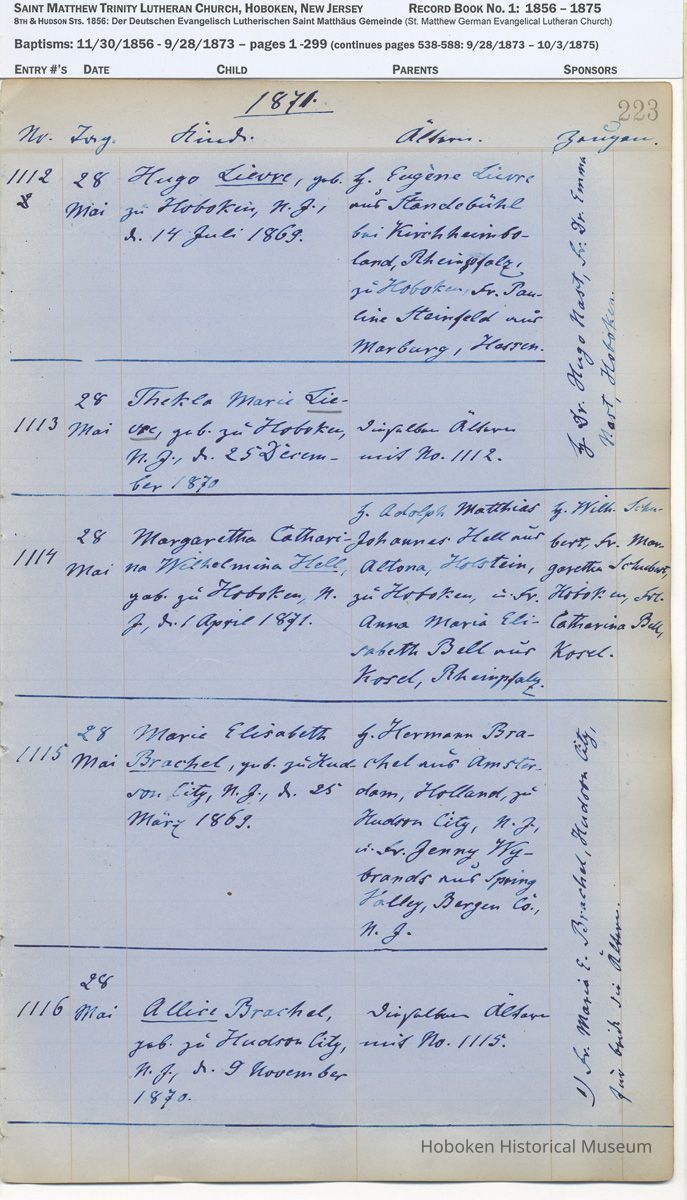 SAINT MATTHEW TRINITY LUTHERAN CHURCH, HOBOKEN, NEW JERSEY RECORD BOOK NO. 1: 1856 – 1875
8TH & HUDSON STS. 1856: Der Deutschen Evangelisch Lutherischen Saint Matthäus Gemeinde (St. Matthew German Evangelical Lutheran Church)
Baptisms: 11/30/1856 - 9/28/1873 – pages 1 -299 (continues pages 538-588: 9/28/1873 – 10/3/1875)
ENTRY #'S DATE CHILD PARENTS SPONSORS
1871.
223
No. Tag. Kind. Ältern. Zeugen.
1112
28
Mai
Hugo Lievre, geb.
zu Hoboken, N. J.,
d. 14 Juli 1869.
H. Eugène Lievre
aus Standebühl
bei Kirchheimbo-
land, Rheinpfalz,
zu Hoboken, Fr. Pau-
line Steinfeld aus
Marburg, Hessen.
H. Dr. Hugo Nast, Fr. Dr. Emma
Nast, Hoboken.
1113
28
Mai
Thekla Marie Lie-
vre, geb. zu Hoboken,
N. J., d. 25 Decem-
ber 1870
Dieselben Ältern
mit No. 1112.
1114
28
Mai
Margaretha Cathari-
na Wilhelmina Hell,
geb. zu Hoboken, N.
J., d. 1 April 1871.
H. Adolph Matthias
Johannes Hell aus
Altona, Holstein,
zu Hoboken, u. Fr.
Anna Maria Eli-
sabeth Bell aus
Kosel, Rheinpfalz.
H. Wilh. Schu-
bert, Fr. Mar-
garetha Schubert,
Hoboken, Frl.
Catharina Bell,
Kosel.
1115
28
Mai
Marie Elisabeth
Brachel, geb. zu Hud-
son City, N. J., d. 25
März 1869.
H. Hermann Bra-
chel aus Amster-
dam, Holland, zu
Hudson City, N. J.,
u. Fr. Jenny Wy-
brands aus Spring
Valley, Bergen Co.,
N. J.
1) Fr. Maria E. Brachel, Hudson City,
für beide die Ältern.
1116
28
Mai
Allice Brachel,
geb. zu Hudson City,
N. J., d. 9 November
1870.
Dieselben Ältern
mit No. 1115.
Hoboken Historical Museum